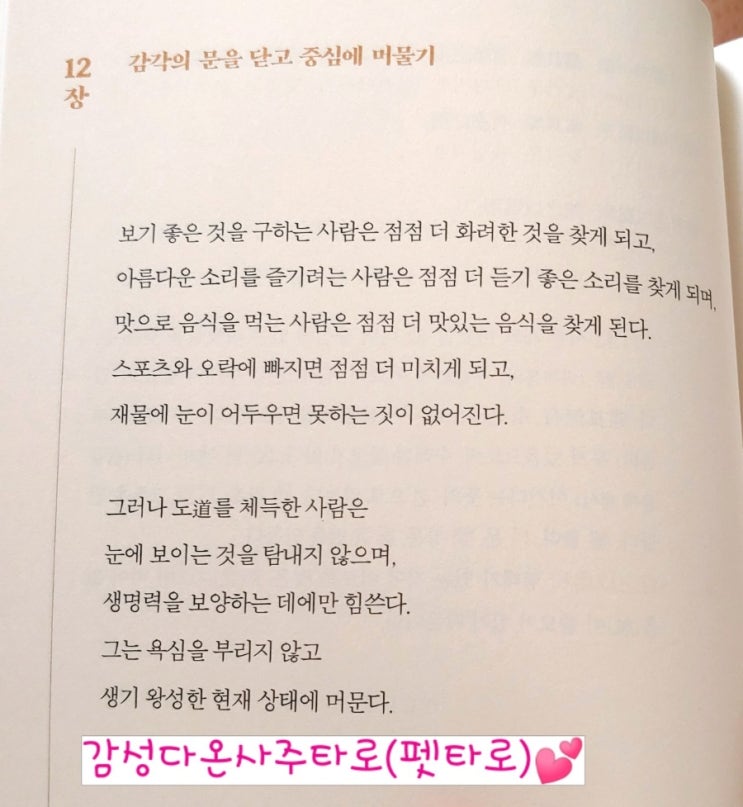 12장 감각의 문을 닫고 중심에 머물기
보기 좋은 것을 구하는 사람은 점점 더 화려한 것을 찾게 되고,
아름다운 소리를 즐기려는 사람은 점점 더 듣기 좋은 소리를 찾게 되며,
맛으로 음식을 먹는 사람은 점점 더 맛있는 음식을 찾게 된다.
스포츠와 오락에 빠지면 점점 더 미치게 되고,
재물에 눈이 어두우면 못하는 짓이 없어진다.
그러나 도道를 체득한 사람은
눈에 보이는 것을 탐내지 않으며,
생명력을 보양하는 데에만 힘쓴다.
그는 욕심을 부리지 않고
생기 왕성한 현재 상태에 머문다.
감성다온사주타로(펫타로)💕